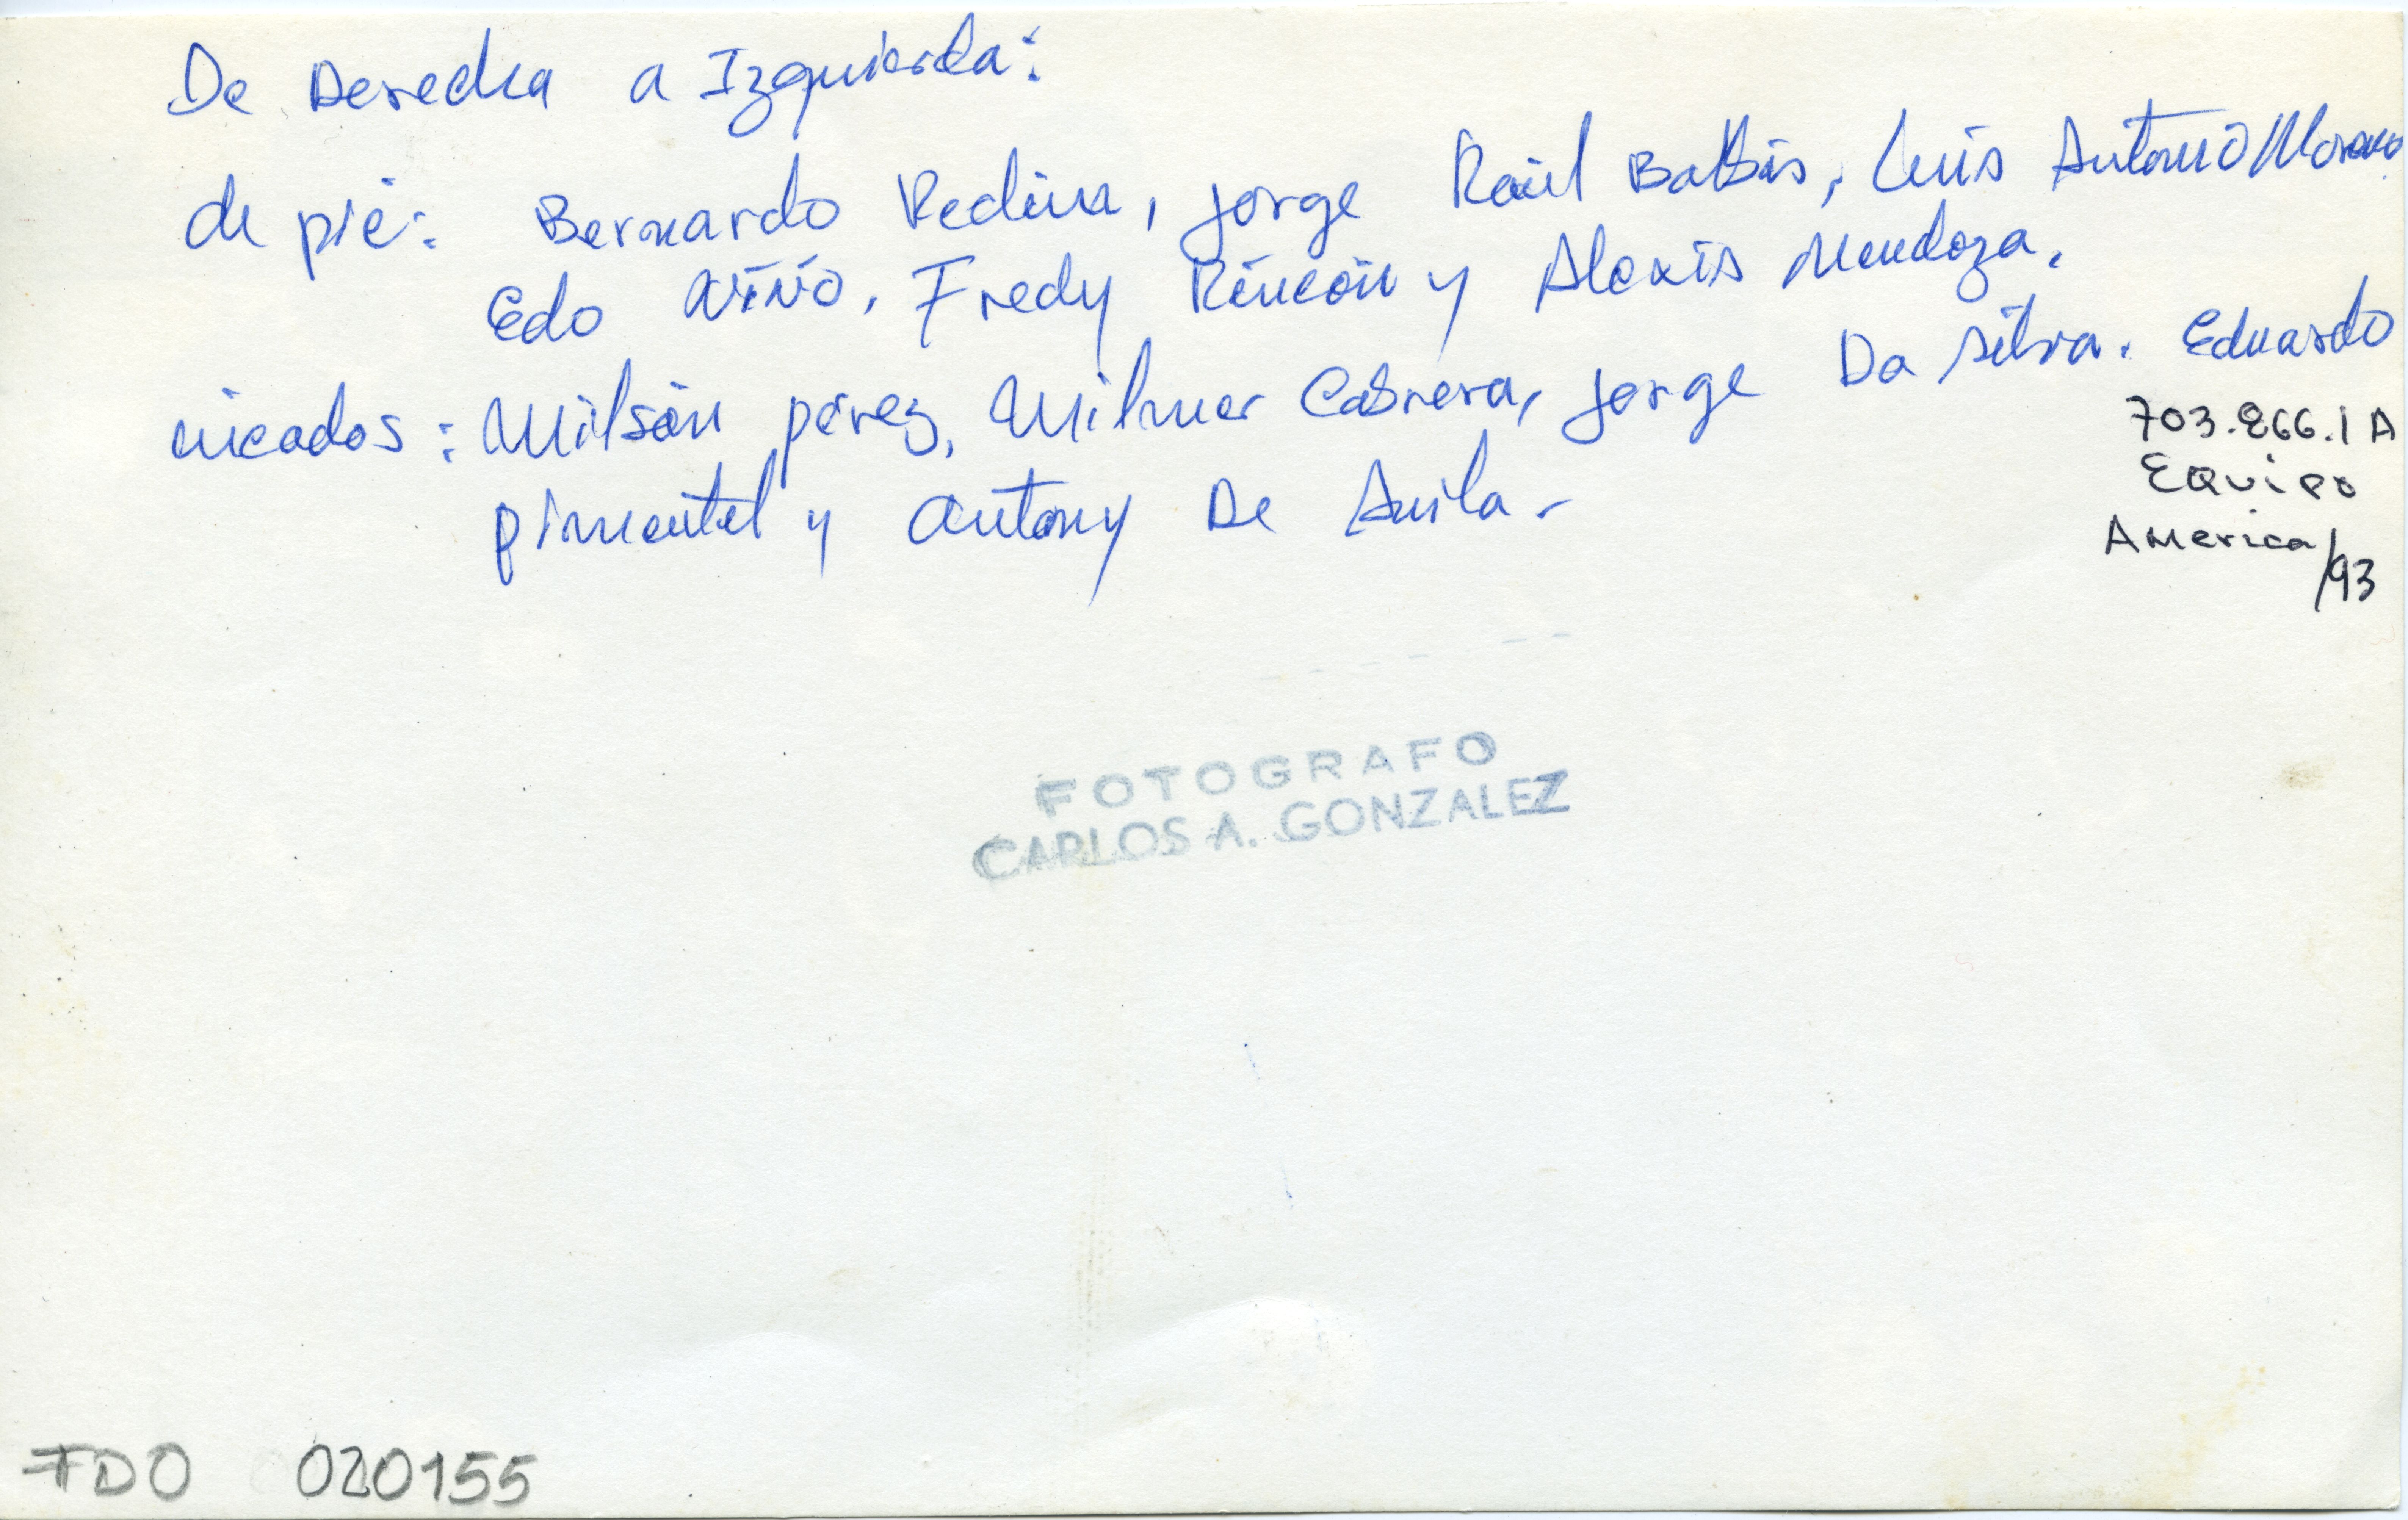 De Derecha a Izquierda:
de pie: Bernardo Redin, Jorge Raúl Balbis, Luis Antonio Moreno
Edo Niño, Fredy Rincón y Alexis Mendoza.
nicados: Wilson pérez, Wilmer Cabrera, Jorge Da Silva. Eduardo
pimentel y Antony De Avila-
703.866.1 A
EQuipo
America/93
FOTOGRAFO
CARLOS A. GONZALEZ
FDO 020155